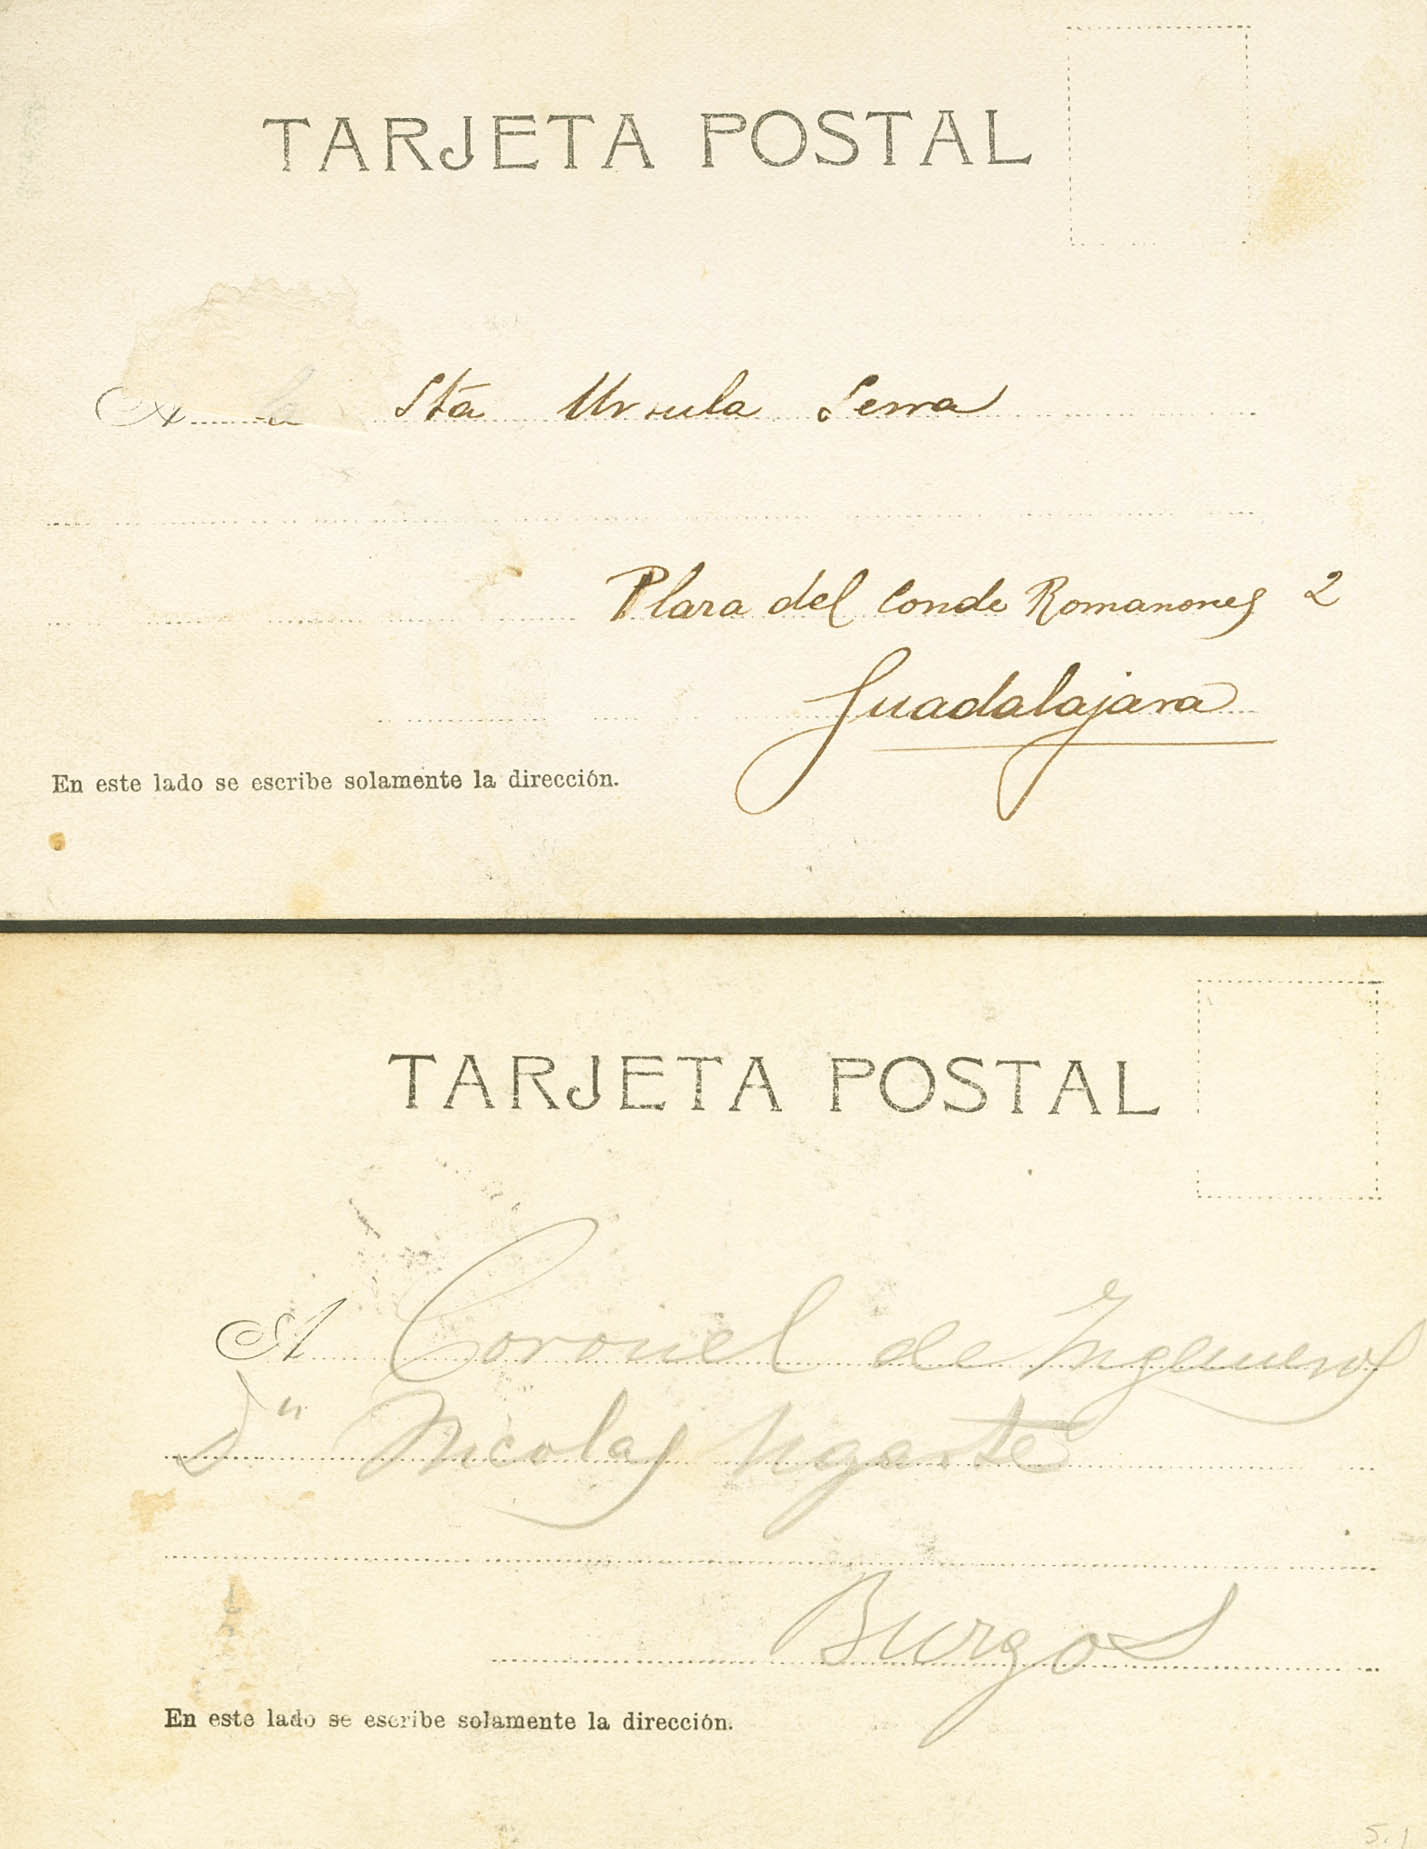 TARJETA POSTAL
A la Sta Ursula Serra
Plaza del Conde Romanones 2
Guadalajara
En este lado se escribe solamente la dirección.
TARJETA POSTAL
A Coronel de Ingenieros
Dn Nicolas Ugarte
Burgos
En este lado se escribe solamente la dirección.
5.1